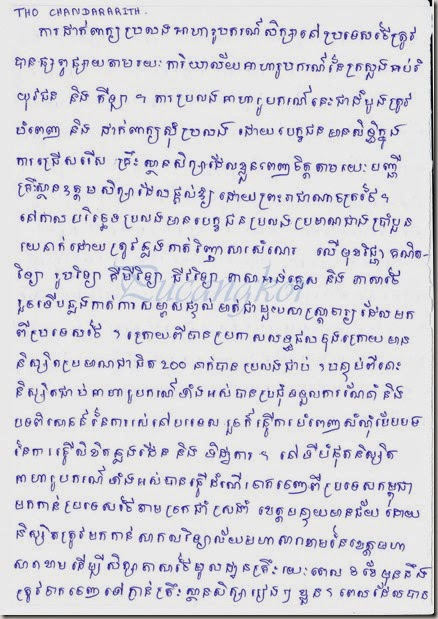 THO CHANDARARITH.
ការដាក់ពាក្យប្រលងអាហារូបករណ៍សិក្សានៅប្រទេសថៃត្រូវ
បានផ្សព្វផ្សាយតាមរយៈ ការិយាល័យអាហារូបករណ៍នៃក្រសួងអប់រំ
យុវជន និង កីឡា ។ ការប្រលងអាហារូបករណ៍នេះជាដំបូងត្រូវ
បំពេញ និង ដាក់ពាក្យសុំប្រលង ដោយបេក្ខជនមានសិទ្ធិក្នុង
ការជ្រើសរើស គ្រឹះស្ថានសិក្សាដែលខ្លួនពេញចិត្តតាមរយៈបញ្ជី
គ្រឹះស្ថានឧត្តមសិក្សាដែលផ្តល់ឱ្យ ដោយព្រះរាជាណាចក្រថៃ។
នៅកាលបរិច្ឆេទប្រលងមានបេក្ខជនប្រលងប្រមាណជាងប្រាំបួន
រយនាក់ដោយត្រូវឆ្លងកាត់វិញ្ញាសារសំណេរ លើមុខវិជ្ជា គណិត-
វិទ្យា រូបវិទ្យា គីមីវិទ្យា ជីវវិទ្យា ភាសាអង់គ្លេស និង ភាសាថៃ
រួចទើបឆ្លងកាត់ការសម្ភាសផ្ទាល់មាត់ជាមួយសាស្ត្រាចារ្យដែលមក
ពីប្រទេសថៃ ។ ក្រោយពីបានប្រកាសលទ្ធផលចុងក្រោយមាន
និស្សិតប្រមាណជាជិត 200 នាក់បានប្រលងជាប់ ។ បន្ទាប់ពីនោះ
និស្សិតជាប់អាហារូបករណ៍ទាំងអស់បានប្រជុំទទួលការណែនាំនិង
បទពិសោធន៍នៃការរស់នៅបរទេស រួចក៏ធ្វើការបំពេញសំណុំបែបបទ
នៃការធ្វើលិខិតឆ្លងដែន និង ទិដ្ឋាការ ។ នៅទីបំផុតនិស្សិត
អាហារូបករណ៍ទាំងអស់បានធ្វើដំណើរចាកចេញពីប្រទេសកម្ពុជា
មកកាន់ប្រទេសថៃតាមច្រក ខេត្តបន្ទាយមានជ័យ ដោយ
និស្សិតត្រូវមកកាន់ សាកលវិទ្យាល័យមហាសារខាមនៃខេត្តមហា
សារខាមដើម្បីសិក្សាភាសាថៃមូលដ្ឋានគ្រឹះរយៈពេល ខែមុននឹង
ត្រូវចាកចេញទៅគ្រាន់គ្រឹះស្ថានសិក្សារៀងៗខ្លួន។ ពេលដែលបាន